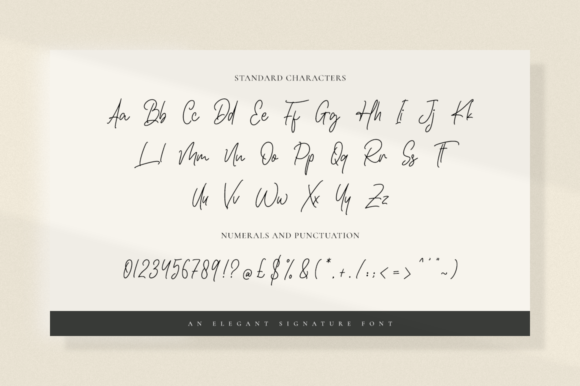 STANDARD CHARACTERS
Aa Bb Cc Dd Ee Ff Gg Hh Ii Jj Kk
Ll Mm Nn Oo Pp Qq Rr Ss Tt
Uu Vv Ww Xx Yy Zz
NUMERALS AND PUNCTUATION
0123456789!?@£$%&(*,+./:;<=>^'"~)
AN ELEGANT SIGNATURE FONT